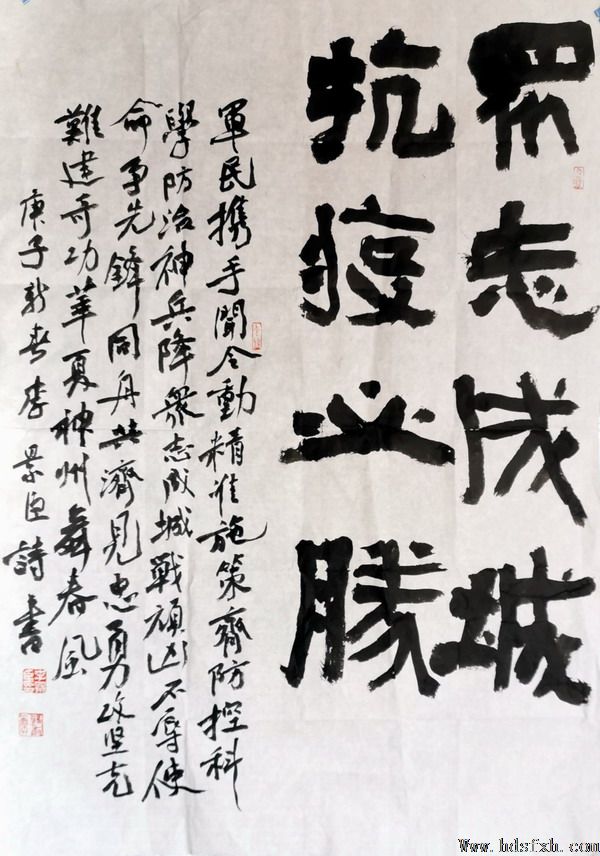 眾志成城
抗疫必勝
軍民携手聞令動精准施策齊防控科
學防治神兵降衆志成城戰頑凶不辱使
命爭先鋒同舟共濟見忠勇攻坚克
難建奇功華夏神州舞春風
庚子新春李景臣詩書
Www.hdsfxh.com